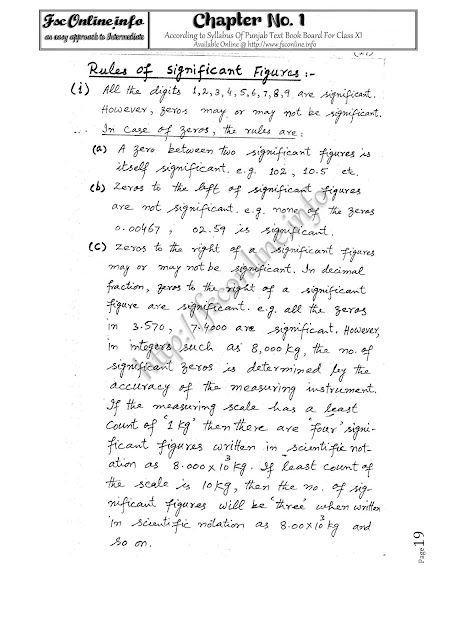 FscOnline.info
an easy approach to Intermediate
Chapter No. 1
According to Syllabus Of Punjab Text Book Board For Class XI
Available Online @ http://www.fsconline.info
Rules of significant Figures :-
(i) All the digits 1,2,3,4,5,6,7,8,9 are significant.
However, zeros may or may not be significant.
In case of zeros, the rules are:
(a) A zero between two significant figures is
itself significant. e.g. 102, 10.5 etc.
(b) Zeros to the left of significant figures
are not significant. e.g. none of the zeros
0.00467, 02.59 is significant.
(C) Zeros to the right of a significant figures
may or may not be significant. In decimal
fraction, zeros to the right of a significant
figure are significant. e.g. all the zeros
in 3.570, 7.4000 are significant. However,
in integers such as 8,000 kg, the no. of
significant zeros is determined by the
accuracy of the measuring instrument.
If the measuring scale has a least
Count of '1 kg' then there are 'four' signi-
ficant figures written in scientific not-
ation as 8.000 x 10³ kg. If least count of
the scale is 10 kg, then the no. of sig-
nificant figures will be 'three' when written
in scientific notation as 8.00 x 10³ kg and
so on.
http://fsconline.info
Page 19